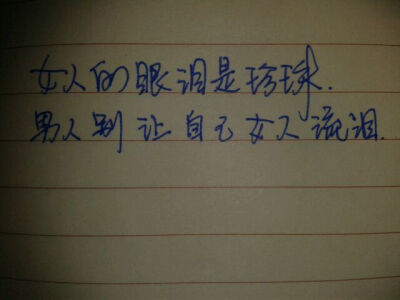 女人的眼泪是珍珠.
男人别让自己女人流泪.